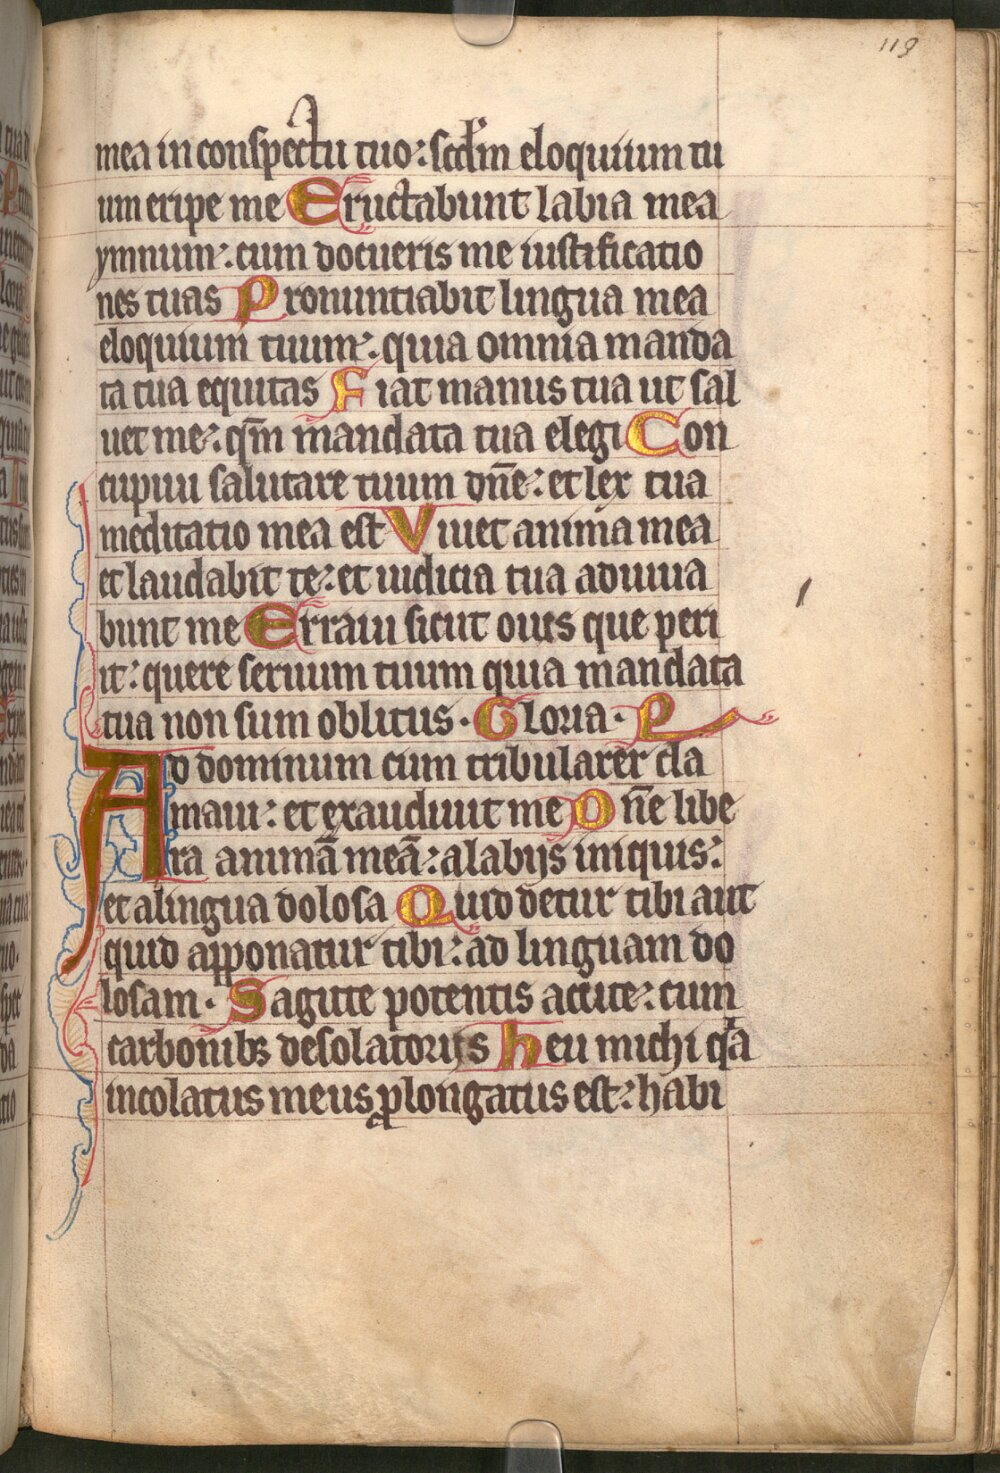 119
mea in conspectu tuo: scd̄m eloquium tu
um eripe me Eructabunt labia mea
ymnum: cum docueris me iustificatio
nes tuas Pronuntiabit lingua mea
eloquium tuum: quia omnia manda
ta tua equitas Fiat manus tua ut sal
uet me: qm̄ mandata tua elegi Con
cupiui salutare tuum dn̄e: et lex tua
meditatio mea est Viuet anima mea
et laudabit te: et iudicia tua adiuua
bunt me Erraui sicut oues que peri
it: quere seruum tuum quia mandata
tua non sum oblitus · Gloria · P
Ad dominum cum tribularer cla
maui: et exaudiuit me Dn̄e libe
ra animā meā: a labijs iniquis:
et a lingua dolosa Quid detur tibi aut
quid apponatur tibi: ad linguam do
losam · Sagitte potentis acute: cum
carbonibꝫ desolatorijs heu michi qͣa
incolatus meus ꝓlongatus est: habi